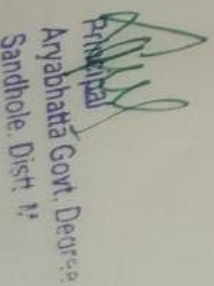 Principal
Aryabhatta Govt. Degree
Sandhole, Distt. M